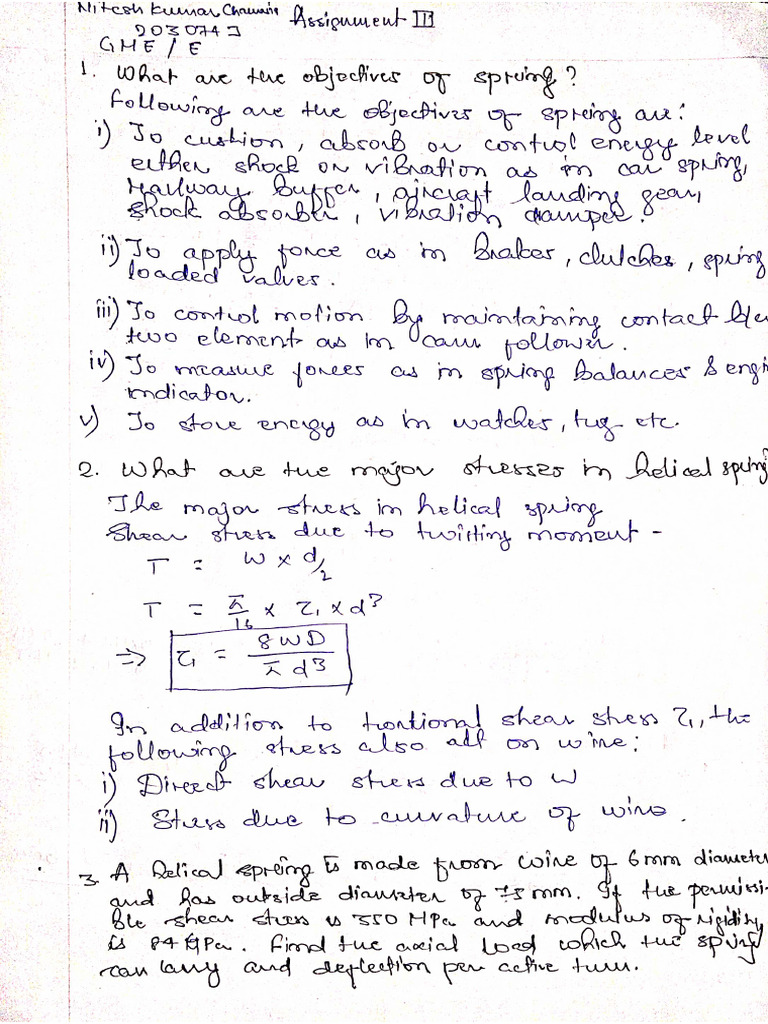 Nitesh Kumar Chaurasia Assignment III
D030743
GME/E
1. What are the objectives of spreing?
Following are the objectives of spreing are:
i) To cushion, absorb or control energy level
either shock or vibration as in car spring,
railway buffer, aircraft landing gear,
shock absorber, vibration damper.
ii) To apply force as in brakes, clutches, spring
loaded valves.
iii) To control motion by maintaining contact b/w
two element as in cam follower.
iv) To measure forces as in spring balances & engi
indicator.
v) To store energy as in watches, tug etc.
2. What are the major stresses in helical spring
The major stress in helical spring
Shear stress due to twisting moment -
T = W × d/2
T = π/16 × τ₁ × d³
⇒ τ₁ = 8WD / πd³
In addition to tortional shear stress τ₁, the
following stress also act on wire:
i) Direct shear stress due to W
ii) Stress due to curvature of wire.
3. A helical spreing is made from wire of 6 mm diameter
and has outside diameter of 75 mm. If the permissi-
ble shear stress is 350 MPa and modulus of rigidity
is 84 GPa. Find the axial load which the spring
can carry and deflection per active turn.